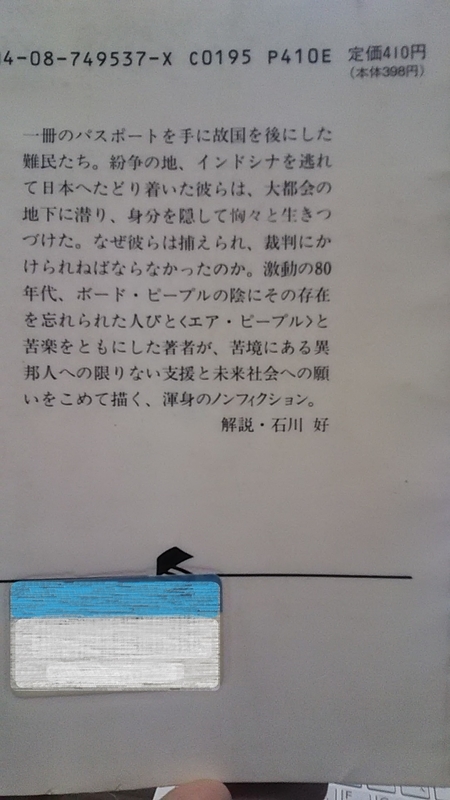 4-08-749537-X C0195 P410E 定価410円
(本体398円)
一冊のパスポートを手に故国を後にした
難民たち。紛争の地、インドシナを逃れ
て日本へたどり着いた彼らは、大都会の
地下に潜り、身分を隠して恟々と生きつ
づけた。なぜ彼らは捕えられ、裁判にか
けられねばならなかったのか。激動の80
年代、ボード・ピープルの陰にその存在
を忘れられた人びと〈エア・ピープル〉と
苦楽をともにした著者が、苦境にある異
邦人への限りない支援と未来社会への願
いをこめて描く、渾身のノンフィクション。
解説・石川 好